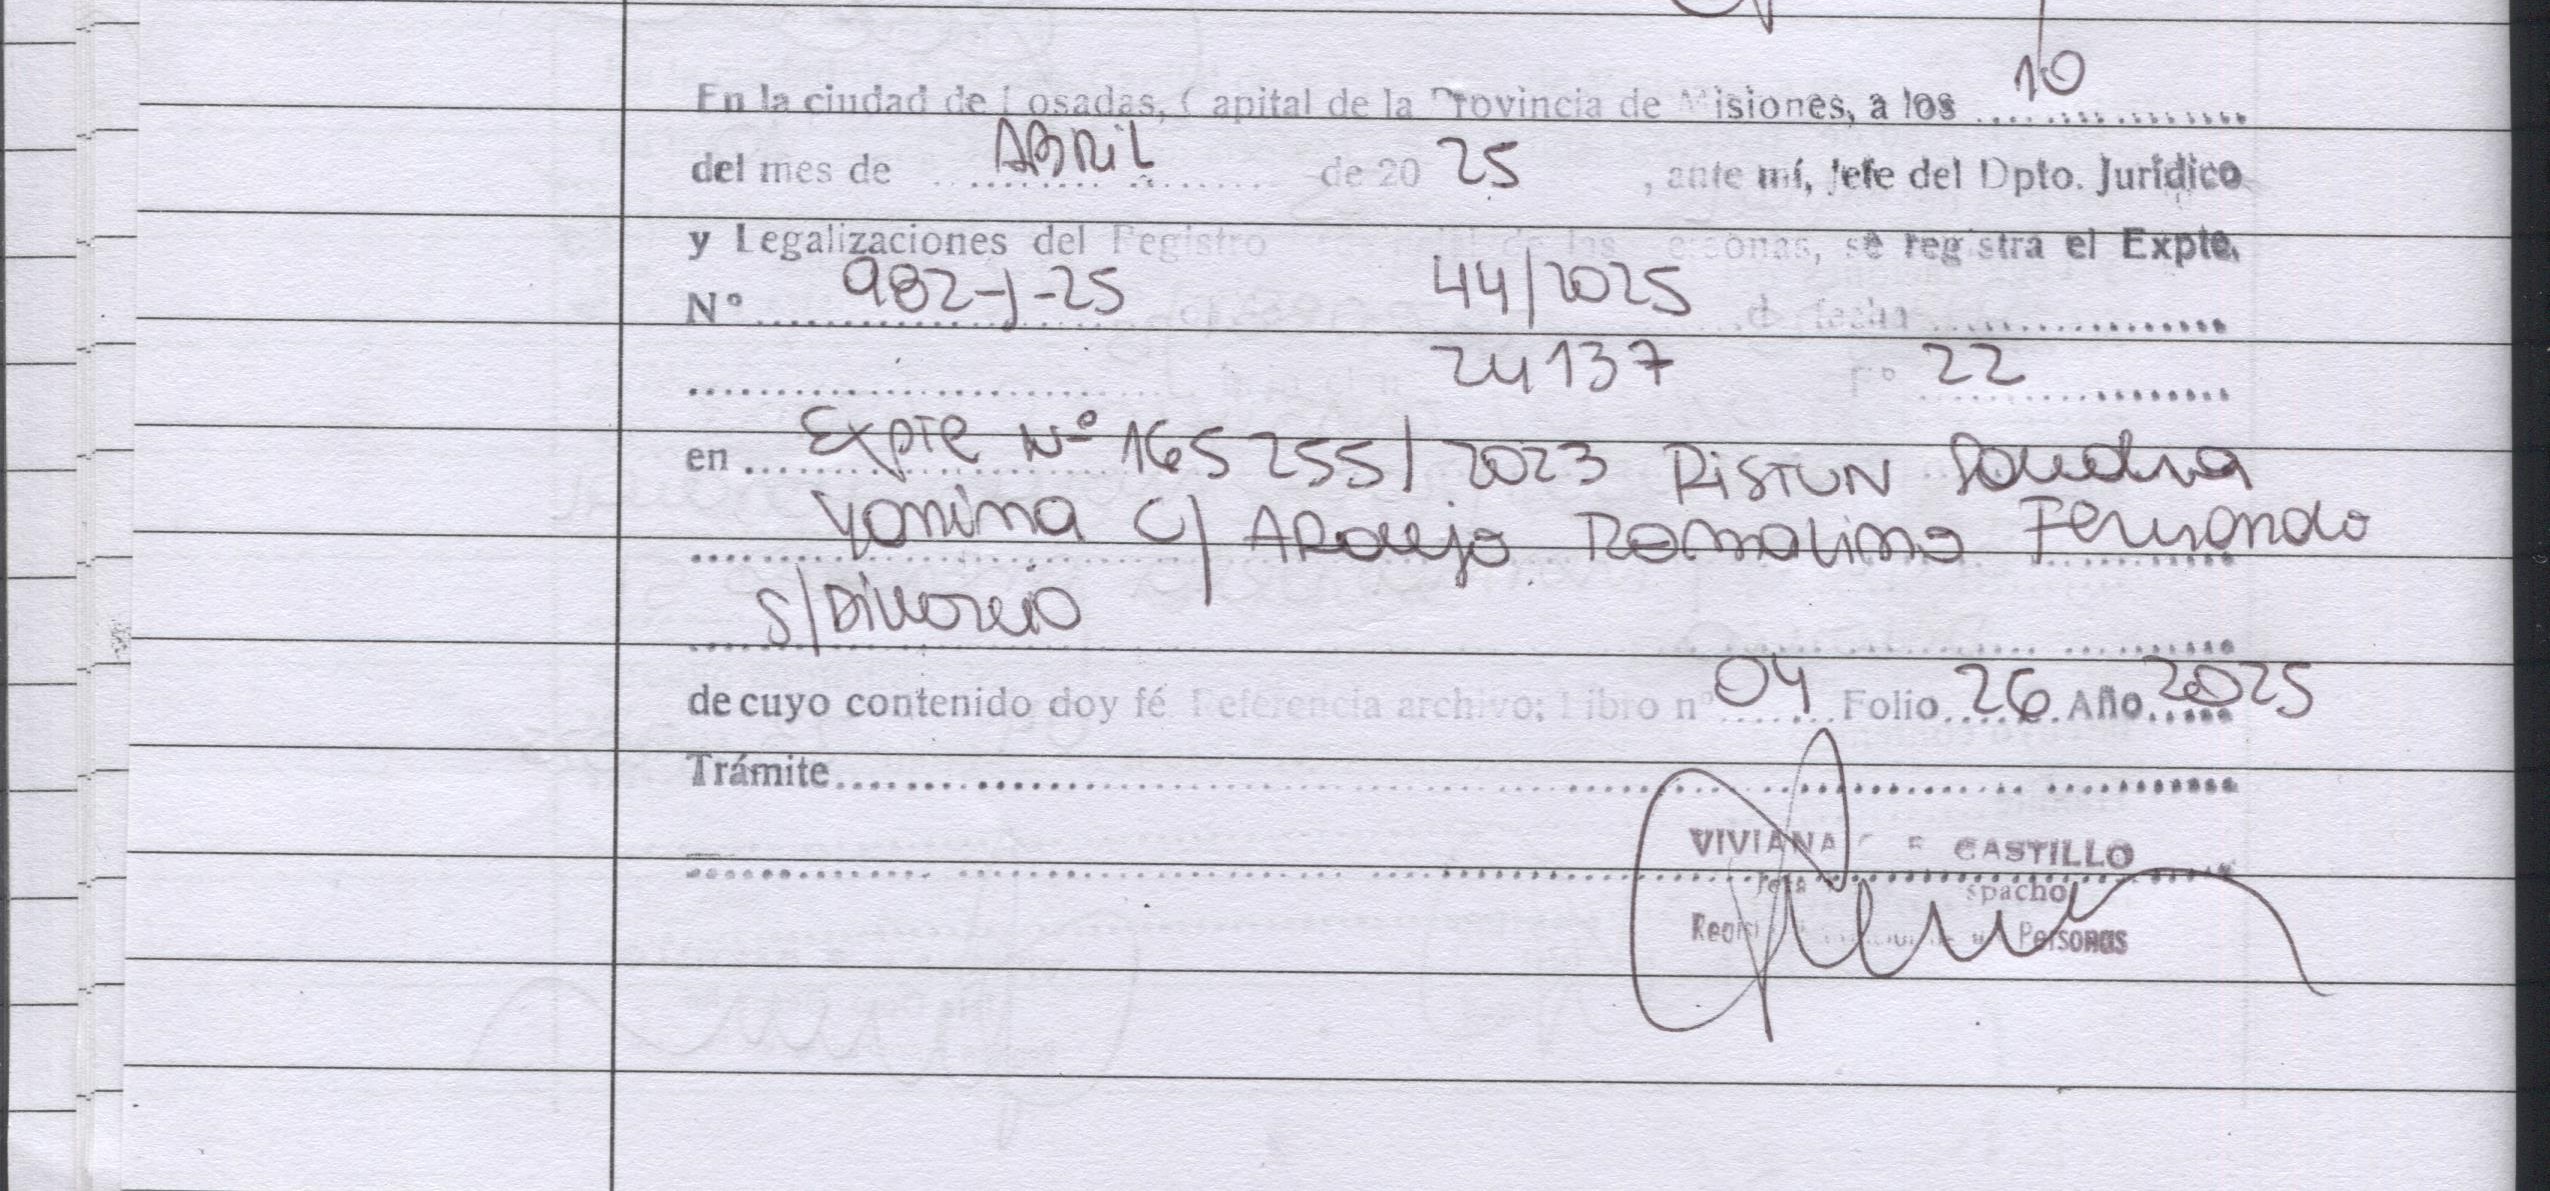 En la ciudad de Posadas, Capital de la Provincia de Misiones, a los 10
del mes de ABRIL de 20 25, ante mí, Jefe del Dpto. Jurídico
y Legalizaciones del Registro de las Personas, se registra el Expte.
N° 982-J-25 44/2025 de fecha
24137 F° 22
en Expte N° 165255/2023 RISTUN Sandra
Yanina C/ Araujo Romalino Fernando
S/Divorcio
de cuyo contenido doy fé Referencia archivo; Libro n° 04 Folio 26 Año 2025
Trámite
VIVIANA CASTILLO
Jefa spacho
Personas